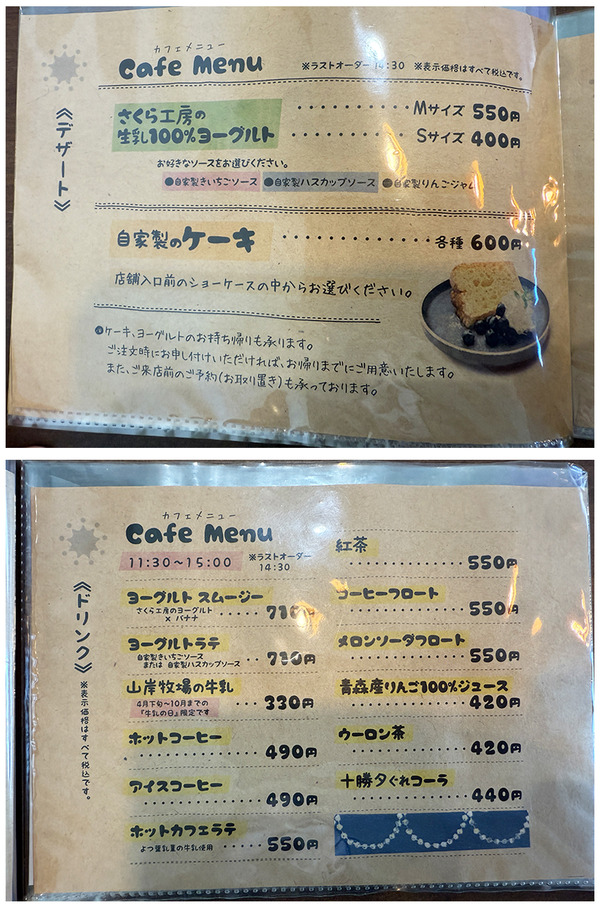 カフェメニュー
Cafe Menu
※ラストオーダー 14:30 ※表示価格はすべて税込です。
《デザート》
さくら工房の
生乳100%ヨーグルト
Mサイズ 550円
Sサイズ 400円
お好きなソースをお選びください。
●自家製きいちごソース ●自家製ハスカップソース ●自家製りんごジャム
自家製のケーキ 各種 600円
店舗入口前のショーケースの中からお選びください。
ケーキ、ヨーグルトのお持ち帰りも承ります。
ご注文時にお申し付けいただければ、お帰りまでにご用意いたします。
また、ご来店前のご予約(お取り置き)も承っております。
カフェメニュー
Cafe Menu
11:30〜15:00
※ラストオーダー
14:30
《ドリンク》
※表示価格はすべて税込です。
ヨーグルト スムージー
さくら工房のヨーグルト
× バナナ
710円
ヨーグルトラテ
自家製きいちごソース
または 自家製ハスカップソース
710円
山岸牧場の牛乳
4月下旬〜10月までの
『牛乳の日』限定です
330円
ホットコーヒー
490円
アイスコーヒー
490円
ホットカフェラテ
よつ葉乳業の牛乳使用
550円
紅茶
550円
コーヒーフロート
550円
メロンソーダフロート
550円
青森産りんご100%ジュース
420円
ウーロン茶
420円
十勝夕ぐれコーラ
440円